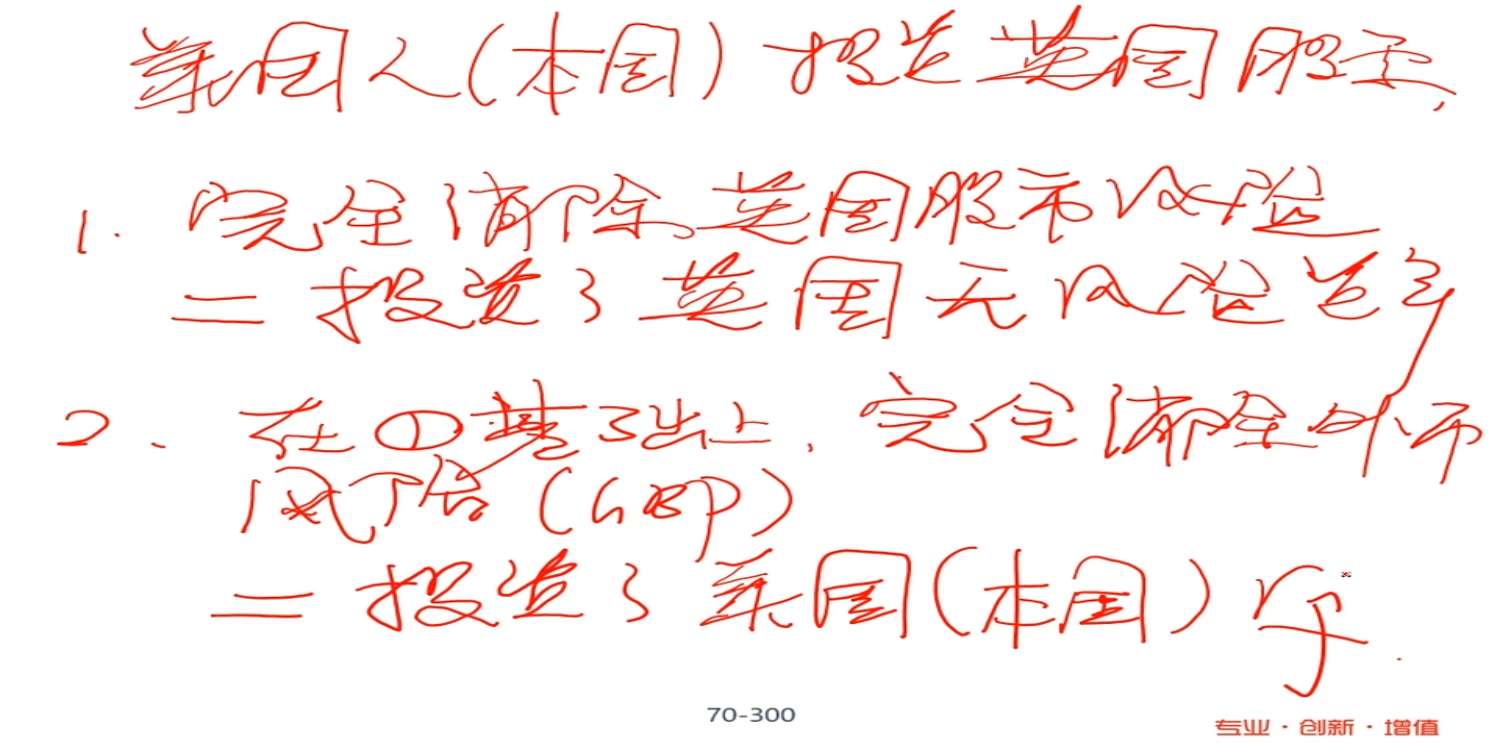 美国人(本国)投资英国股票,
1. 完全消除英国股市风险
= 投资了英国无风险资产
2. 在①基础上,完全消除外币
风险(GBP)
= 投资了美国(本国)rf.
70-300
专业·创新·增值